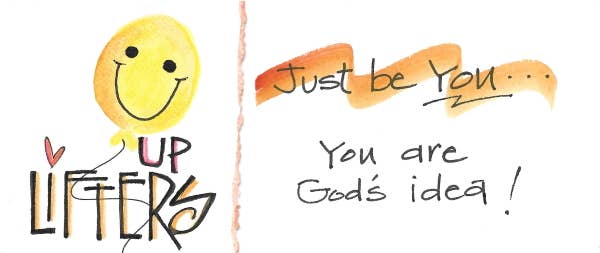 UP
LIFTERS
Just be You...
You are
God's idea!